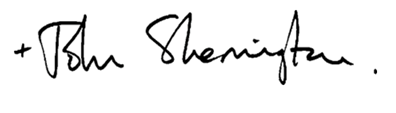 + John Sherrington.